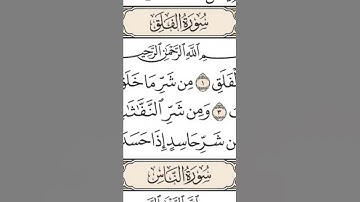 سُورَةُ الْفَلَقِ
ـمِ ٱللَّهِ ٱلرَّحْمَٰنِ ٱلرَّحِيمِ
ٱلْفَلَقِ ١ مِن شَرِّ مَا خَلَقَ
٣ وَمِن شَرِّ ٱلنَّفَّٰثَٰتِ
شَرِّ حَاسِدٍ إِذَا حَسَدَ
سُورَةُ النَّاسِ